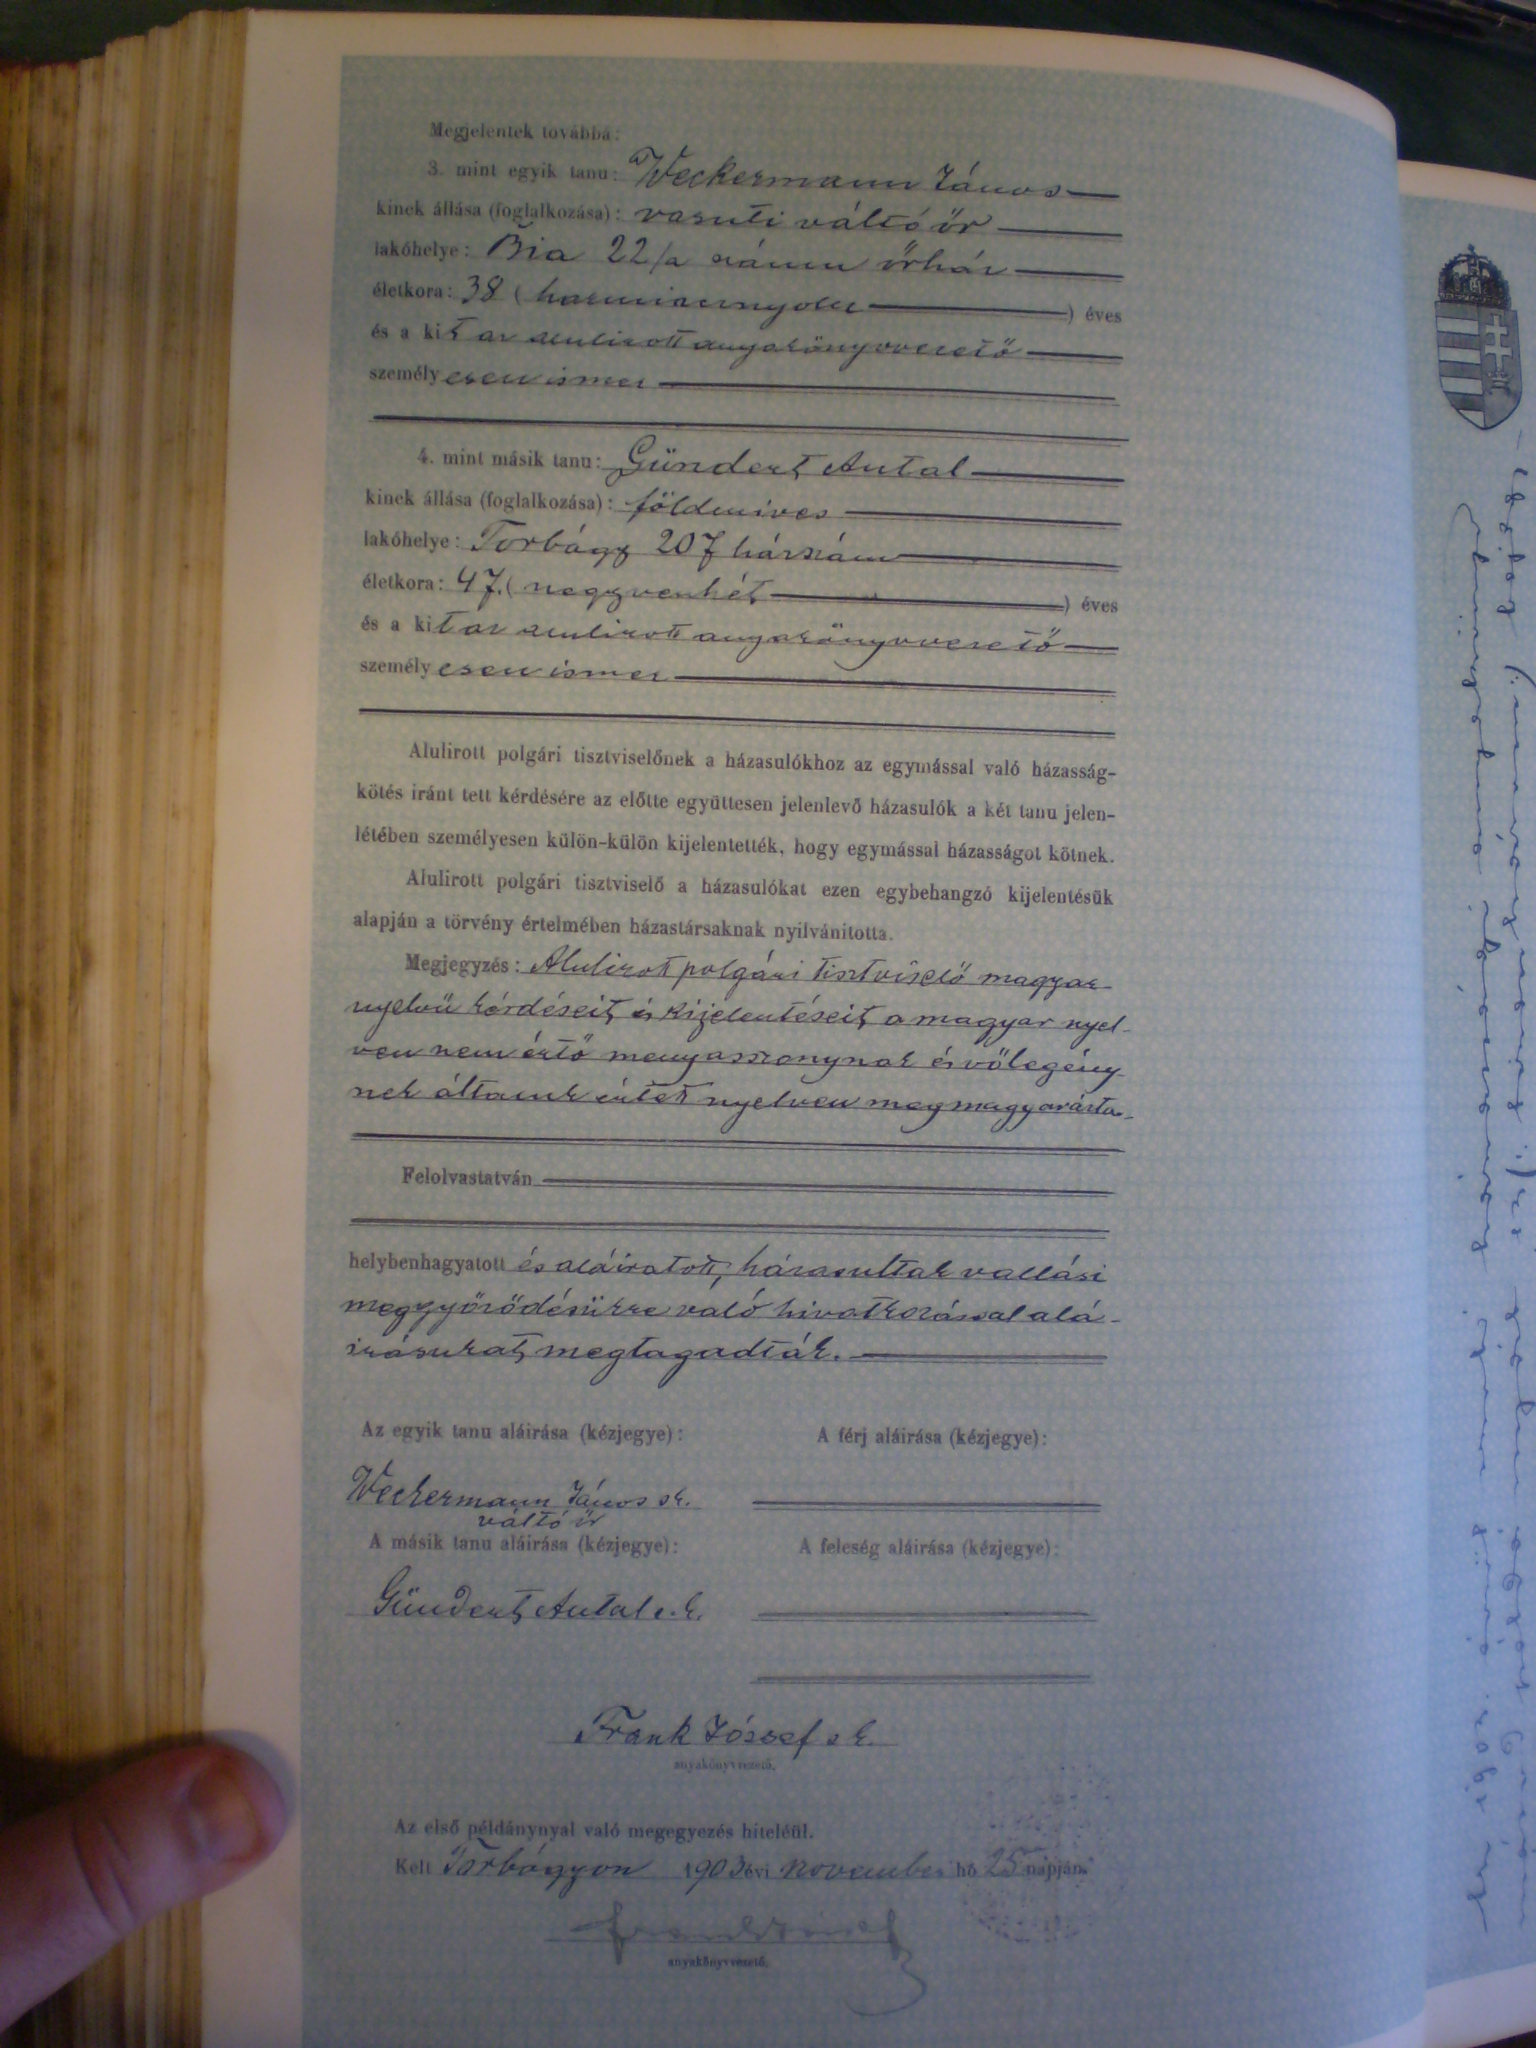 Megjelentek továbbá:
3. mint egyik tanu: Weckermann János
kinek állása (foglalkozása): vasuti váltó őr
lakóhelye: Bia 22/a számu őrház
életkora: 38 (harmincnyolc) éves
és a kit az alulirott anyakönyvvezető
személyesen ismer
4. mint másik tanu: Gündert Antal
kinek állása (foglalkozása): földmives
lakóhelye: Torbágy 207 házszám
életkora: 47. (negyvenhét) éves
és a kit az alulirott anyakönyvvezető
személyesen ismer
Alulirott polgári tisztviselőnek a házasulókhoz az egymással való házasság-
kötés iránt tett kérdésére az előtte együttesen jelenlevő házasulók a két tanu jelen-
létében személyesen külön-külön kijelentették, hogy egymással házasságot kötnek.
Alulirott polgári tisztviselő a házasulókat ezen egybehangzó kijelentésük
alapján a törvény értelmében házastársaknak nyilvánitotta.
Megjegyzés: Alulirott polgári tisztviselő magyar
nyelvü kérdéseit és kijelentéseit a magyar nyel-
ven nem értő menyasszonynak és vőlegény-
nek általuk értett nyelven megmagyarázta.
Felolvastatván
helybenhagyatott és aláiratott, házasultak vallási
meggyőződésükre való hivatkozással alá-
irásukat megtagadták.
Az egyik tanu aláirása (kézjegye): A férj aláirása (kézjegye):
Weckermann János sk.
váltó őr
A másik tanu aláirása (kézjegye): A feleség aláirása (kézjegye):
Gündert Antal s. k.
Frank József sk.
anyakönyvvezető.
Az első példánynyal való megegyezés hiteléül.
Kelt Torbágyon 1903 évi november hó 25 napján.
anyakönyvvezető.